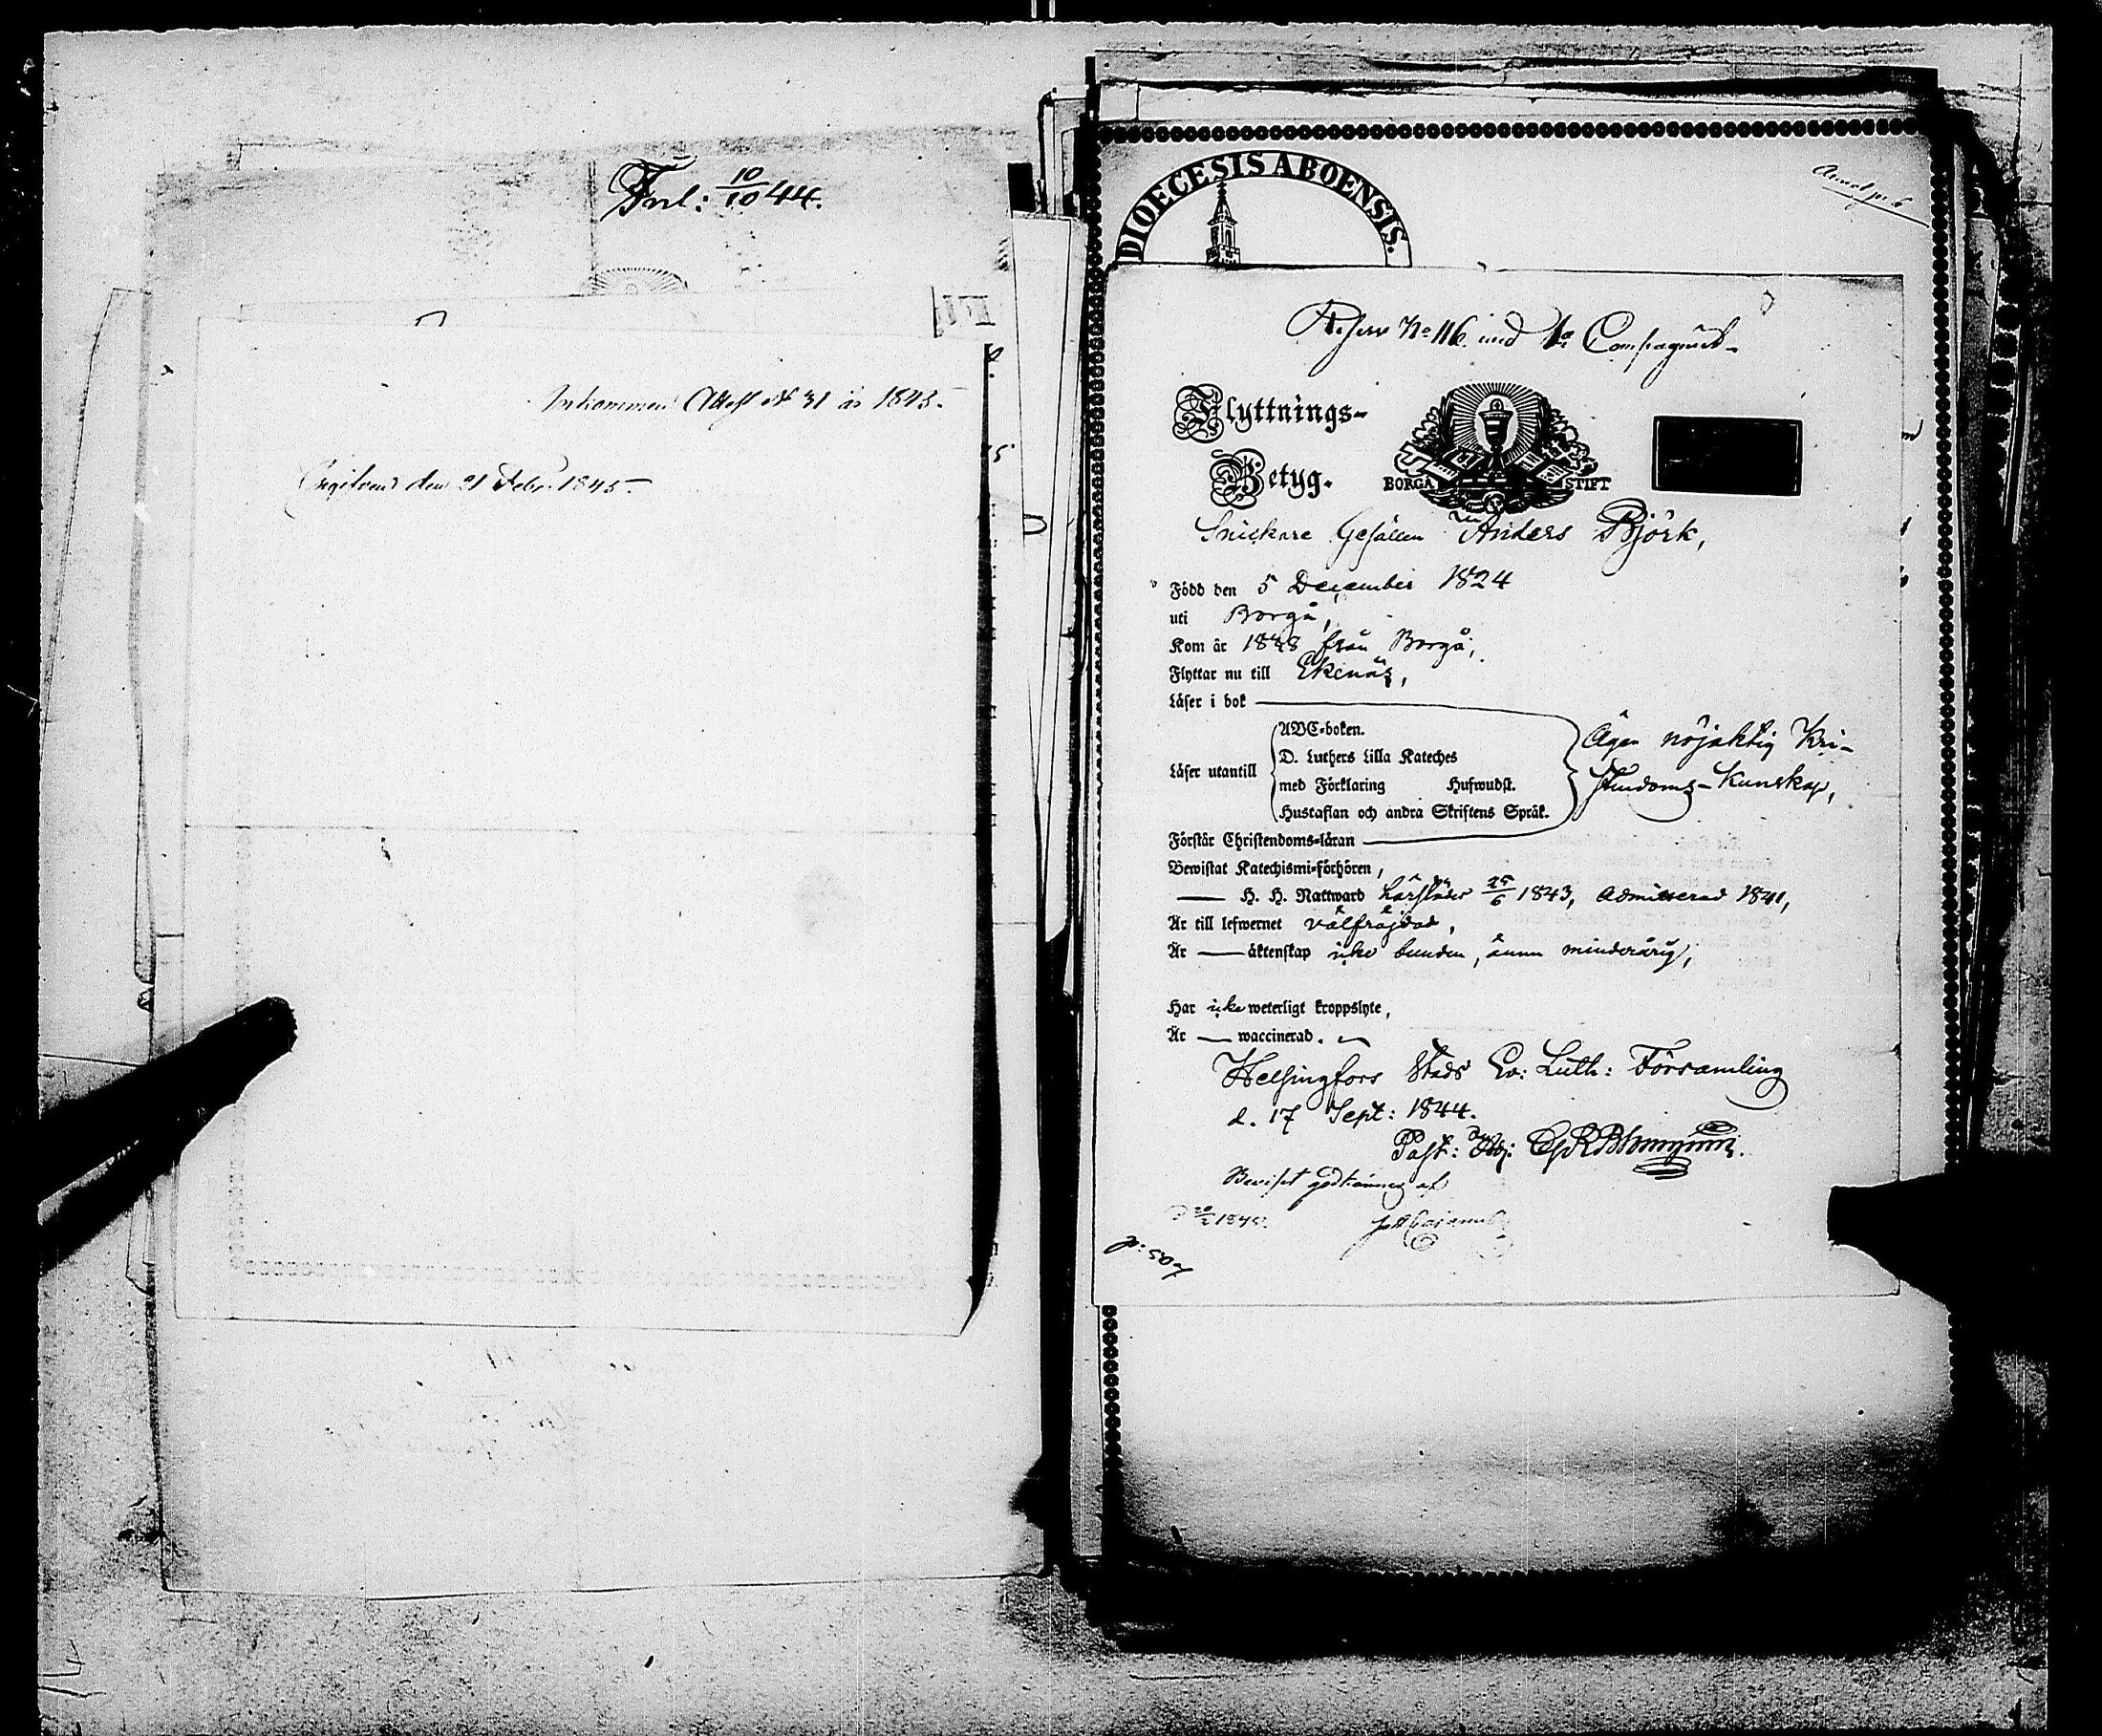 Inl: 10/10 44.
Inkommen Attest No 31 år 1845.
Ingifven den 21 Febr. 1845.
DIOECESIS ABOENSIS.
No 116 vid 1a Compagniet
Flyttnings-
Betyg.
BORGÅ STIFT
Snickare Gesällen Anders Björk,
Född den 5 December 1824
uti Borgå,
Kom år 1838 från Borgå;
Flyttar nu till Ekenäs,
Läser i bok
Läser utantill
ABC-boken.
D. Luthers Lilla Kateches
med Förklaring Hufwudst.
Hustaflan och andra Skriftens Språk.
Äger nöjaktig Kri-
stendoms-Kunskap,
Förstår Christendoms-läran
Bewistat Katechismi-förhören,
— H. H. Nattward härstädes 25/6 1843, admitterad 1841,
Är till lefwernet välfräjdad,
Är — äktenskap icke bunden, ännu minderårig,
Har icke weterligt kroppslyte,
Är — waccinerad.
Helsingfors Stads Ev: Luth: Församling
d. 17 Sept: 1844.
Past: Adj:
Beviset godkännes af
p: 507